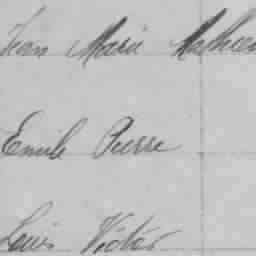 Jean Marie Mathieu
Emile Pierre
Louis Victor